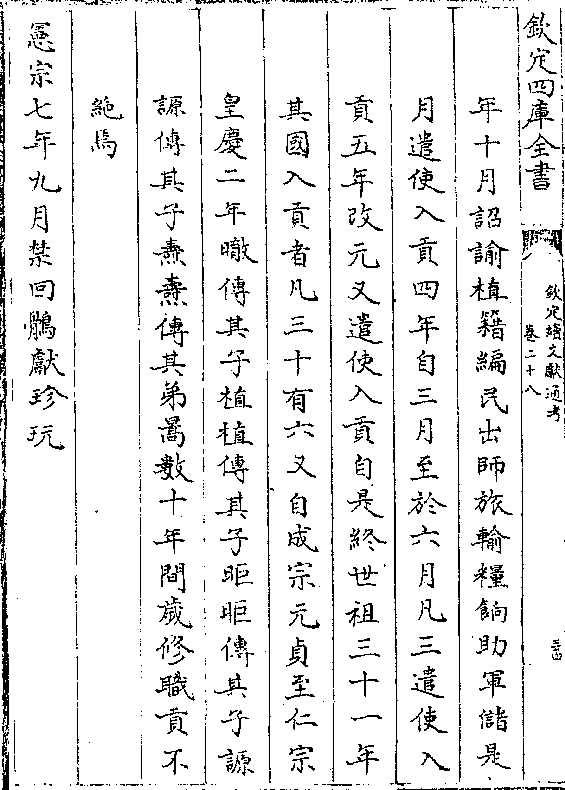 欽定四庫全書
欽定續文獻通考
卷二十八
年十月詔諭植籍編民出師旅輸糧餉助軍儲是
月遣使入貢四年自三月至於六月凡三遣使入
貢五年改元又遣使入貢自是終世祖三十一年
其國入貢者凡三十有六又自成宗元貞至仁宗
皇慶二年暾傳其子植植傳其子昛昛傳其子謜
謜傳其子燾燾傳其弟暠數十年間歲修職貢不
絶焉
憲宗七年九月禁回鶻獻珍玩